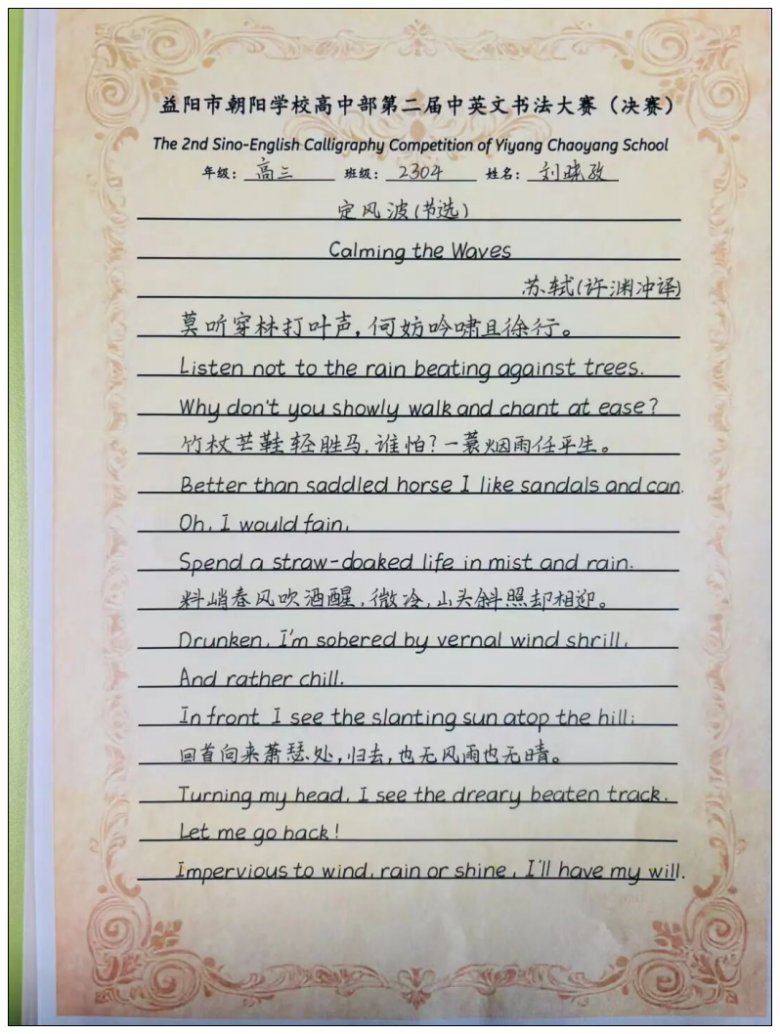 益阳市朝阳学校高中部第二届中英文书法大赛（决赛）
The 2nd Sino-English Calligraphy Competition of Yiyang Chaoyang School
年级：高三 班级：2304 姓名：刘
定风波(节选)
Calming the Waves
苏轼(许渊冲译)
莫听穿林打叶声，何妨吟啸且徐行。
Listen not to the rain beating against trees.
Why don't you showly walk and chant at ease?
竹杖芒鞋轻胜马，谁怕？一蓑烟雨任平生。
Better than saddled horse I like sandals and can.
Oh, I would fain,
Spend a straw-doaked life in mist and rain.
料峭春风吹酒醒，微冷，山头斜照却相迎。
Drunken, I'm sobered by vernal wind shrill,
And rather chill.
In front I see the slanting sun atop the hill;
回首向来萧瑟处，归去，也无风雨也无晴。
Turning my head, I see the dreary beaten track.
Let me go hack!
Impervious to wind, rain or shine, I'll have my will.